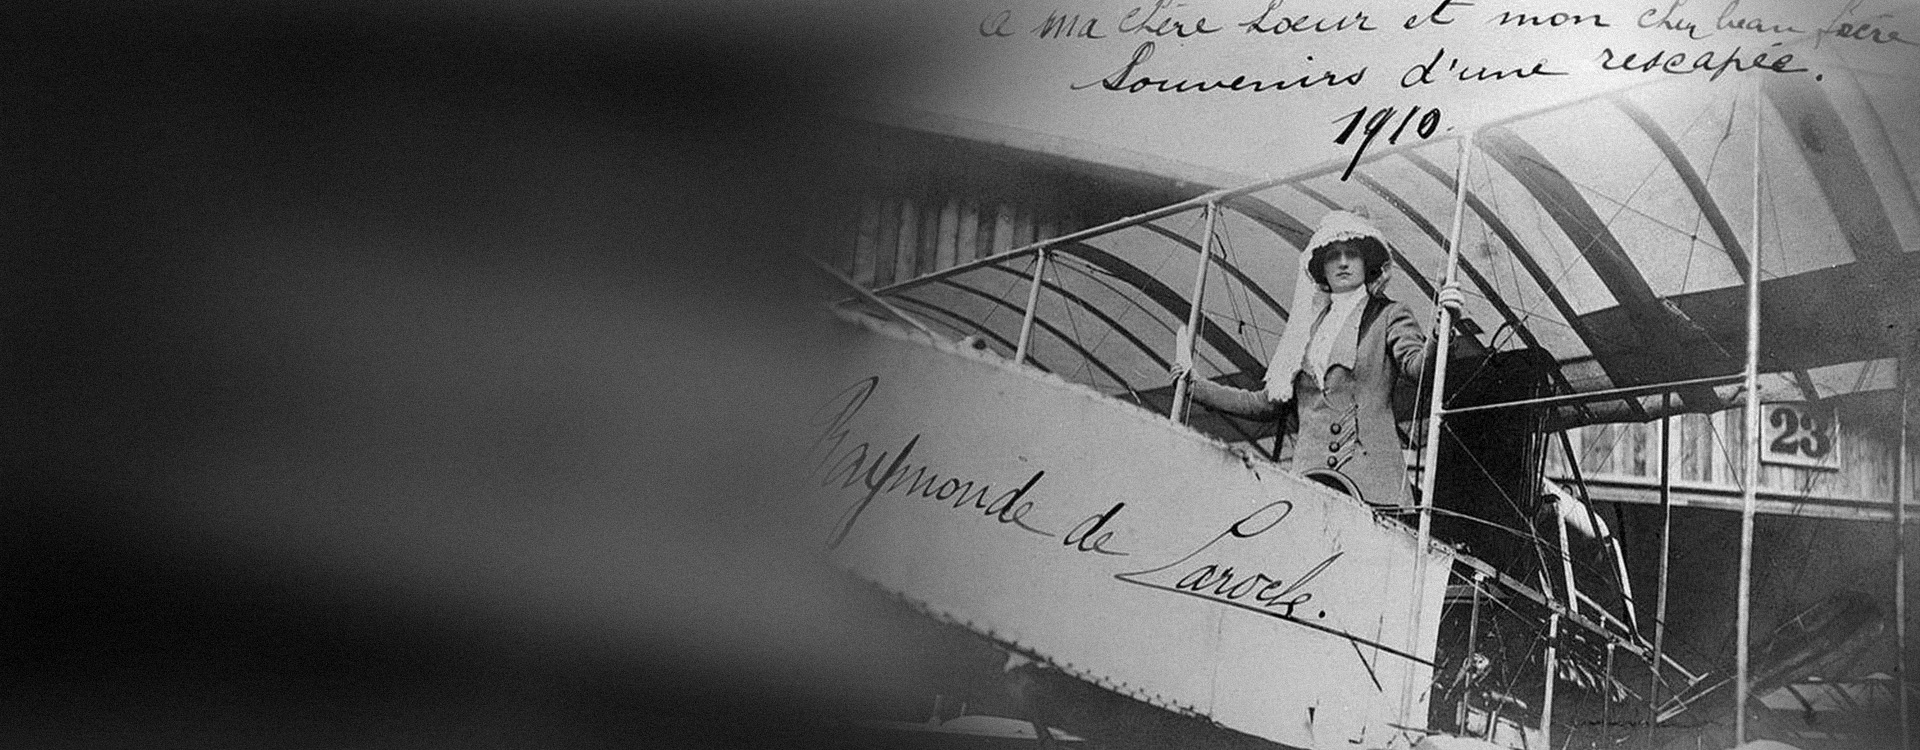 A ma chère Soeur et mon cher beau frère
Souvenirs d'une rescapée.
1910.
23
Raymonde de Laroche.